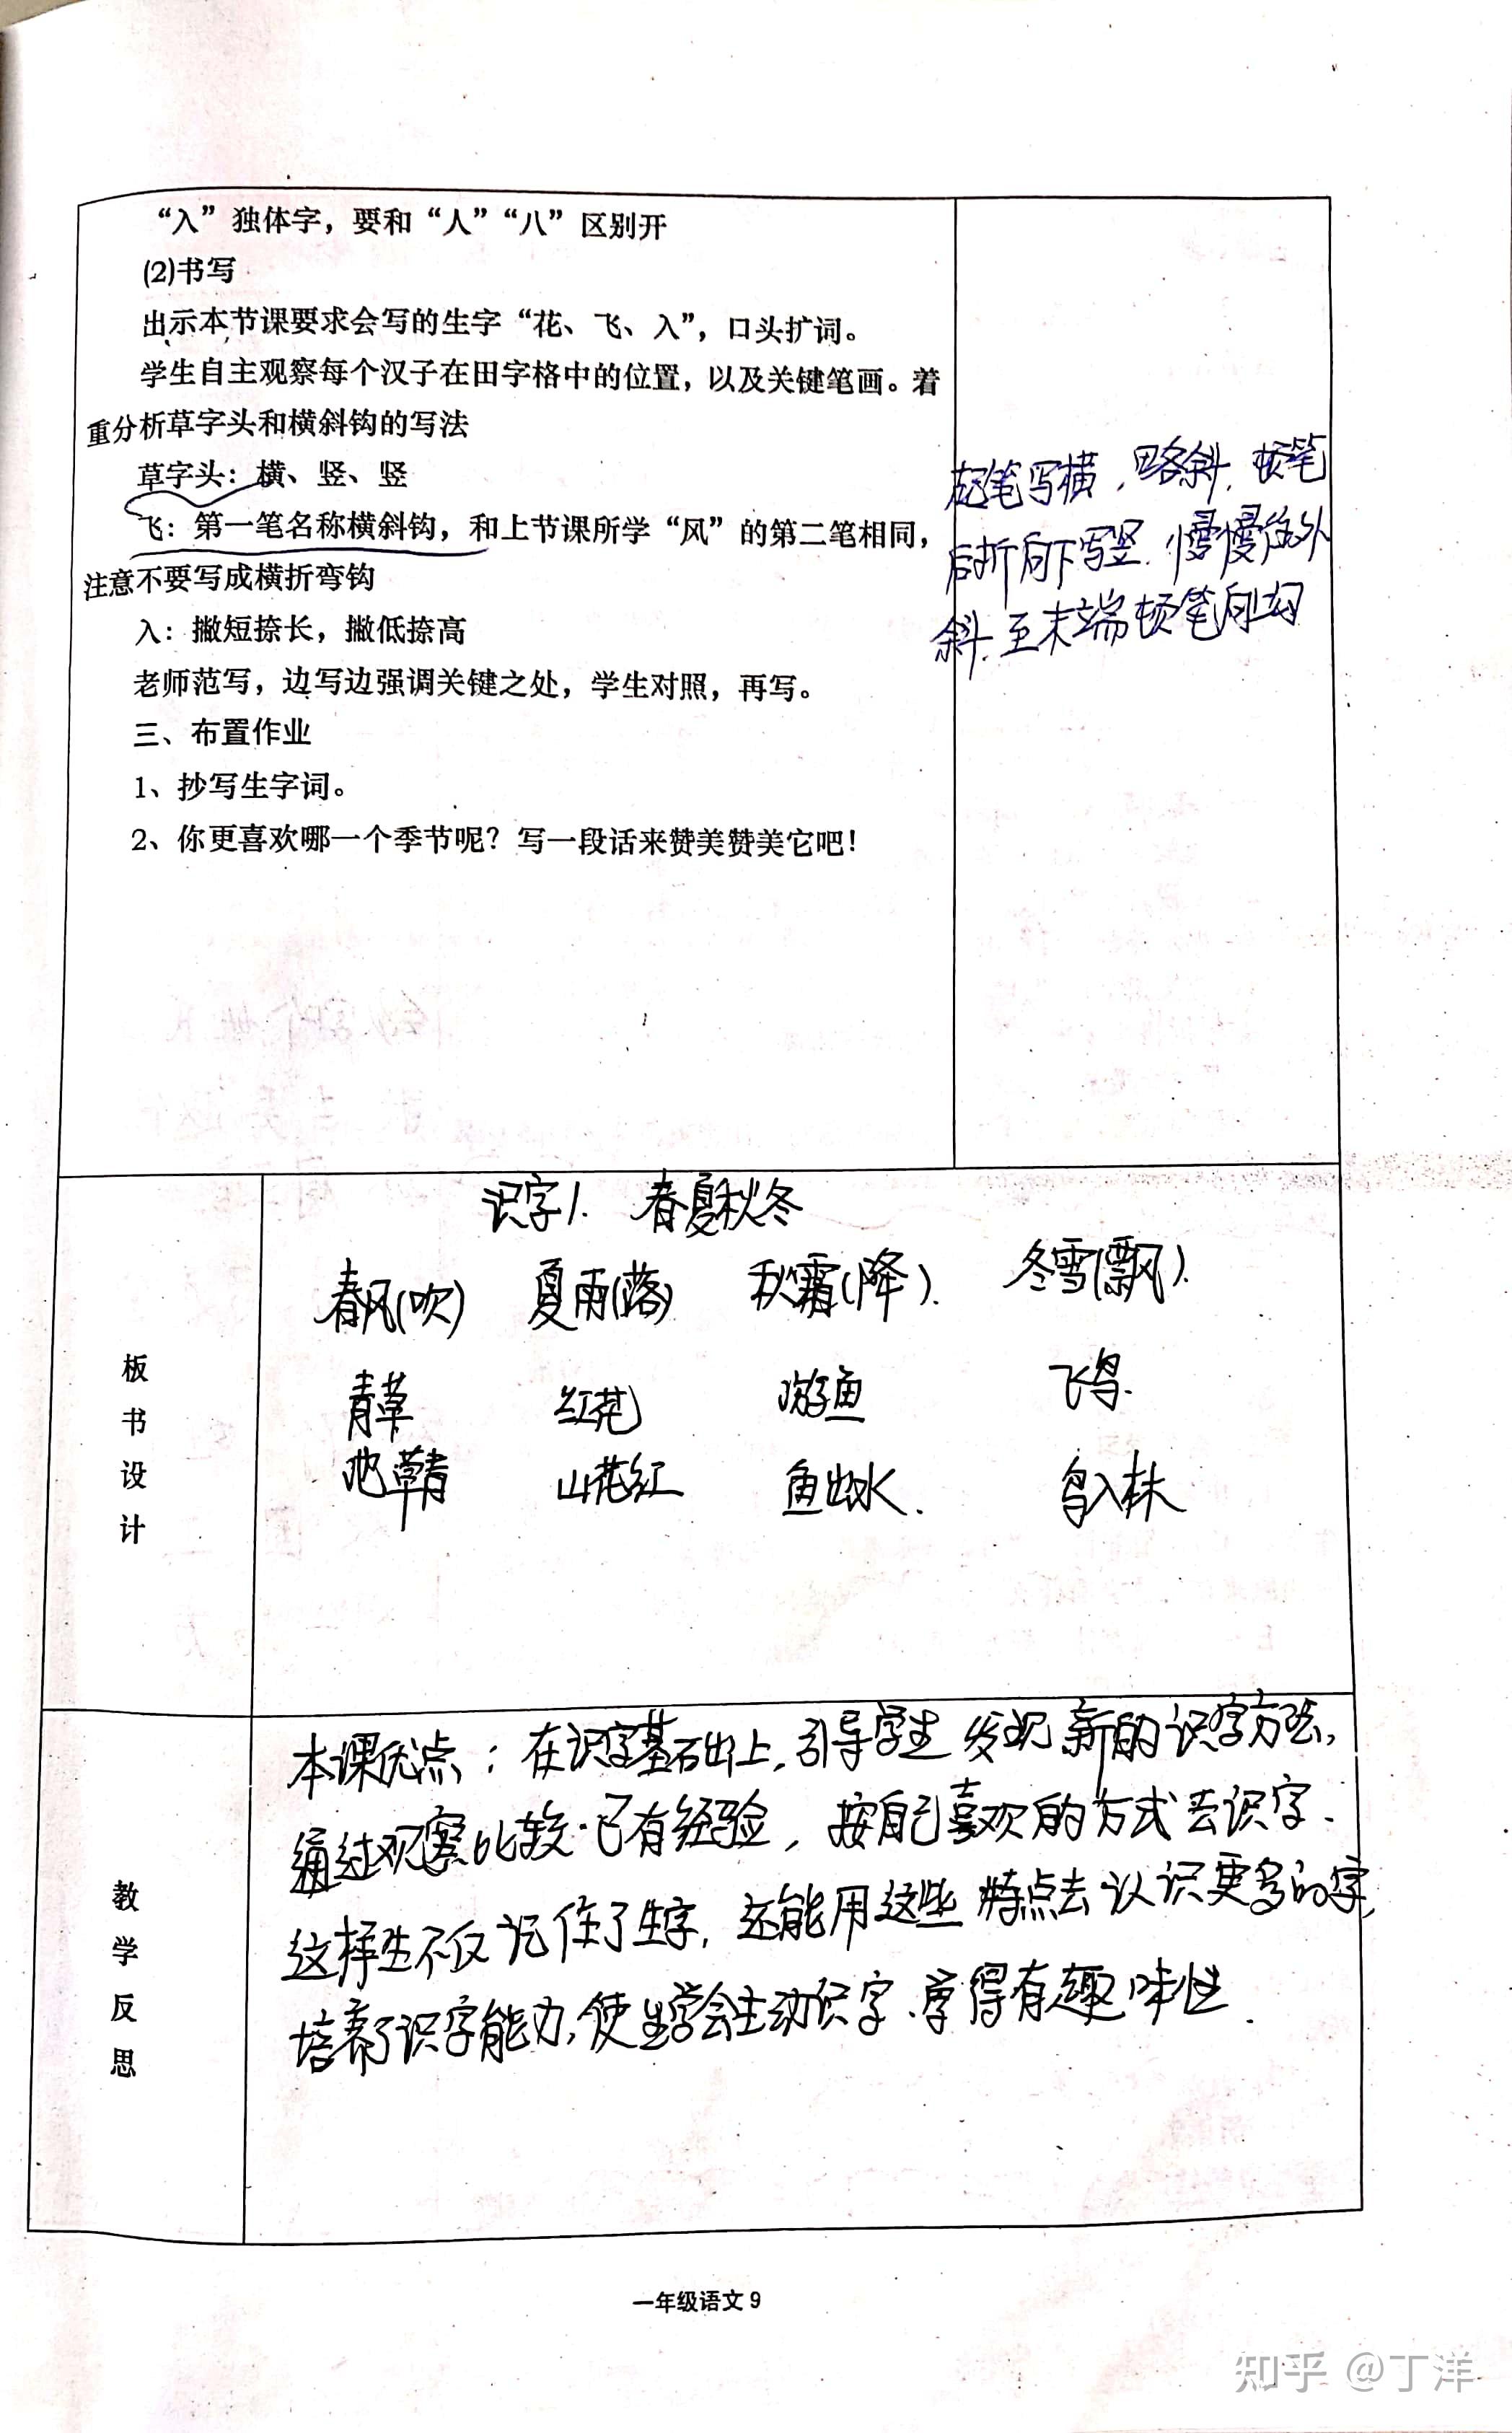 “入”独体字，要和“人”“八”区别开
(2)书写
出示本节课要求会写的生字“花、飞、入”，口头扩词。
学生自主观察每个汉子在田字格中的位置，以及关键笔画。着
重分析草字头和横斜钩的写法
草字头：横、竖、竖
飞：第一笔名称横斜钩，和上节课所学“风”的第二笔相同，
注意不要写成横折弯钩
入：撇短捺长，撇低捺高
老师范写，边写边强调关键之处，学生对照，再写。
三、布置作业
1、抄写生字词。
2、你更喜欢哪一个季节呢？写一段话来赞美赞美它吧！
起笔写横，略斜，顿笔
后折向下写竖．慢慢往外
斜．至末端顿笔向上勾
板书设计
识字1. 春夏秋冬
春风(吹) 夏雨(落) 秋霜(降). 冬雪(飘).
青草 红花 游鱼 飞鸟.
池草青 山花红 鱼出水. 鸟入林
教学反思
本课优点：在识字基础上，引导学生发现新的识字方法，
通过观察比较．已有经验，按自己喜欢的方式去识字．
这样生不仅记住了生字，还能用这些特点去认识更多的字，
培养了识字能力，使学生会主动识字、学得有趣味性．
一年级语文9
知乎 @丁洋